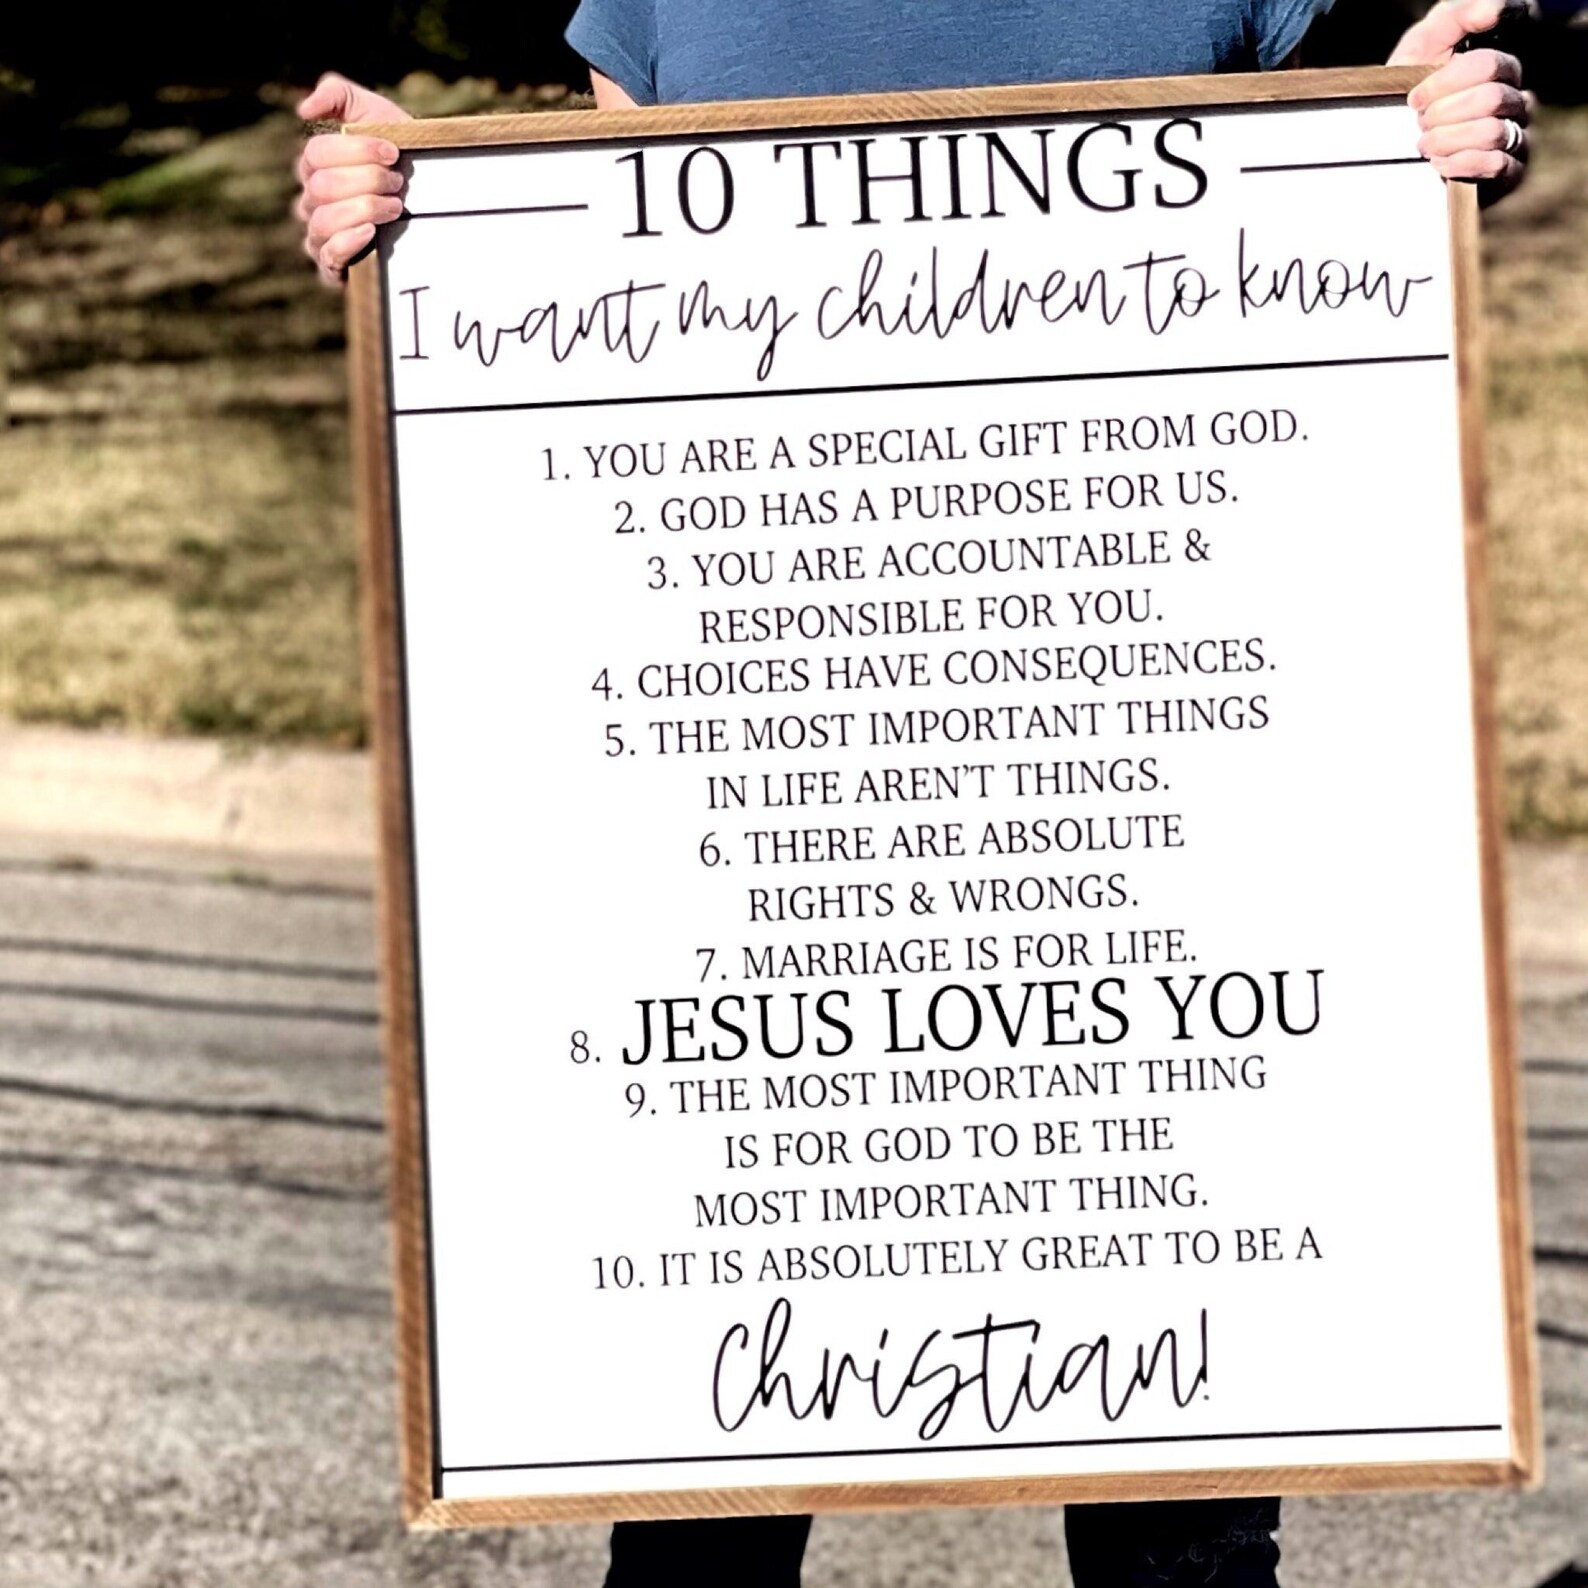 10 THINGS
I want my children to know
1. YOU ARE A SPECIAL GIFT FROM GOD.
2. GOD HAS A PURPOSE FOR US.
3. YOU ARE ACCOUNTABLE &
RESPONSIBLE FOR YOU.
4. CHOICES HAVE CONSEQUENCES.
5. THE MOST IMPORTANT THINGS
IN LIFE AREN'T THINGS.
6. THERE ARE ABSOLUTE
RIGHTS & WRONGS.
7. MARRIAGE IS FOR LIFE.
8. JESUS LOVES YOU
9. THE MOST IMPORTANT THING
IS FOR GOD TO BE THE
MOST IMPORTANT THING.
10. IT IS ABSOLUTELY GREAT TO BE A
Christian!